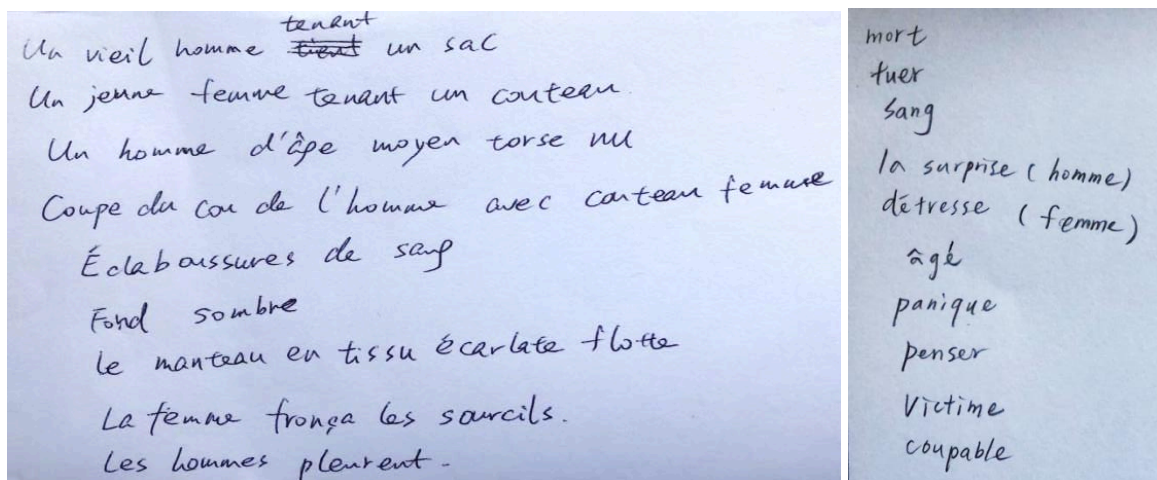 Un vieil homme tenant un sac
Un jeune femme tenant un couteau
Un homme d'âpe moyen torse nu
Coupe du cou de l'homme avec couteau femme
Éclaboussures de sang
Fond sombre
le manteau en tissu écarlate flotte
La femme fronça les sourcils.
Les hommes pleurent.
mort
tuer
sang
la surprise (homme)
détresse (femme)
âgé
panique
penser
Victime
coupable